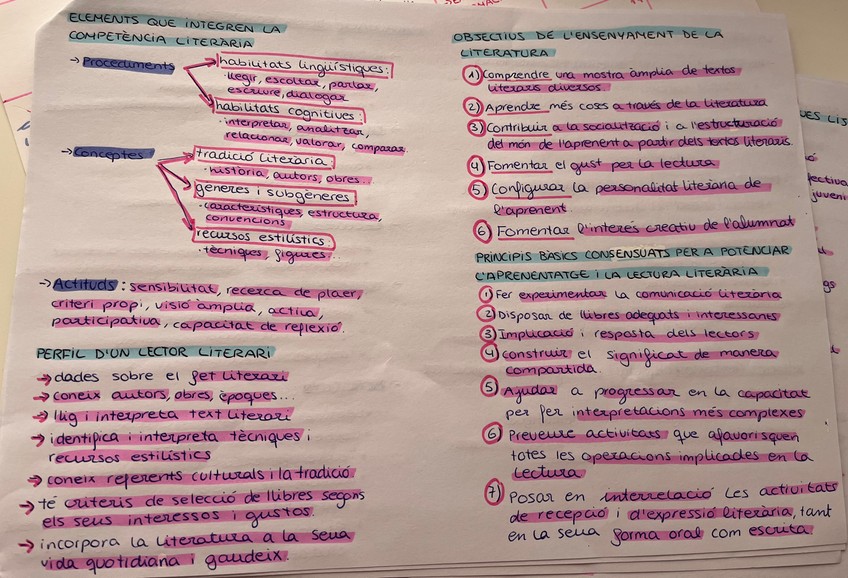 ELEMENTS QUE INTEGREN LA
COMPETÈNCIA LITERÀRIA
→ Procediments
habilitats lingüístiques:
· llegir, escoltar, parlar,
escriure, dialogar
habilitats cognitives:
· interpretar, analitzar,
relacionar, valorar, comparar.
→ Conceptes
tradició literària:
· història, autors, obres...
gèneres i subgèneres
· característiques, estructura,
convencions
recursos estilístics:
· tècniques, figures...
→ Actituds: sensibilitat, recerca de plaer,
criteri propi, visió àmplia, activa,
participativa, capacitat de reflexió.
PERFIL D'UN LECTOR LITERARI
→ dades sobre el fet literari
→ coneix autors, obres, èpoques...
→ llig i interpreta text literari
→ identifica i interpreta tècniques i
recursos estilístics
→ coneix referents culturals i la tradició
→ té criteris de selecció de llibres segons
els seus interessos i gustos.
→ incorpora la literatura a la seua
vida quotidiana i gaudeix.
OBJECTIUS DE L'ENSENYAMENT DE LA
LITERATURA
1) Comprendre una mostra àmplia de textos
literaris diversos.
2) Aprendre més coses a través de la literatura
3) Contribuir a la socialització i a l'estructuració
del món de l'aprenent a partir dels textos literaris.
4) Fomentar el gust per la lectura
5) Configurar la personalitat literària de
l'aprenent.
6) Fomentar l'interés creatiu de l'alumnat
PRINCIPIS BÀSICS CONSENSUATS PER A POTENCIAR
L'APRENENTATGE I LA LECTURA LITERÀRIA
1) Fer experimentar la comunicació literària
2) Disposar de llibres adequats i interessants
3) Implicació i resposta dels lectors
4) construir el significat de manera
compartida.
5) Ajudar a progressar en la capacitat
per fer interpretacions més complexes
6) Preveure activitats que afavorisquen
totes les operacions implicades en la
lectura
7) Posar en interrelació les activitats
de recepció i d'expressió literària, tant
en la seua forma oral com escrita.